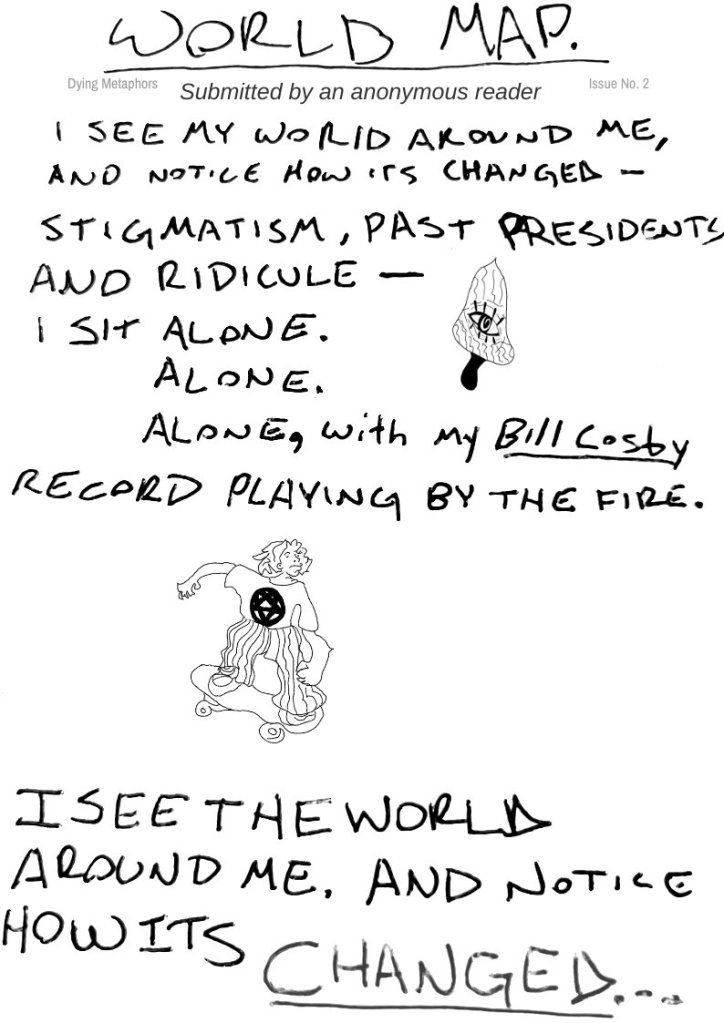 WORLD MAP.
Dying Metaphors
Submitted by an anonymous reader
Issue No. 2
I SEE MY WORLD AROUND ME,
AND NOTICE HOW ITS CHANGED —
STIGMATISM, PAST PRESIDENTS
AND RIDICULE —
I SIT ALONE.
ALONE.
ALONE, with my Bill Cosby
RECORD PLAYING BY THE FIRE.
I SEE THE WORLD
AROUND ME. AND NOTICE
HOW ITS
CHANGED...